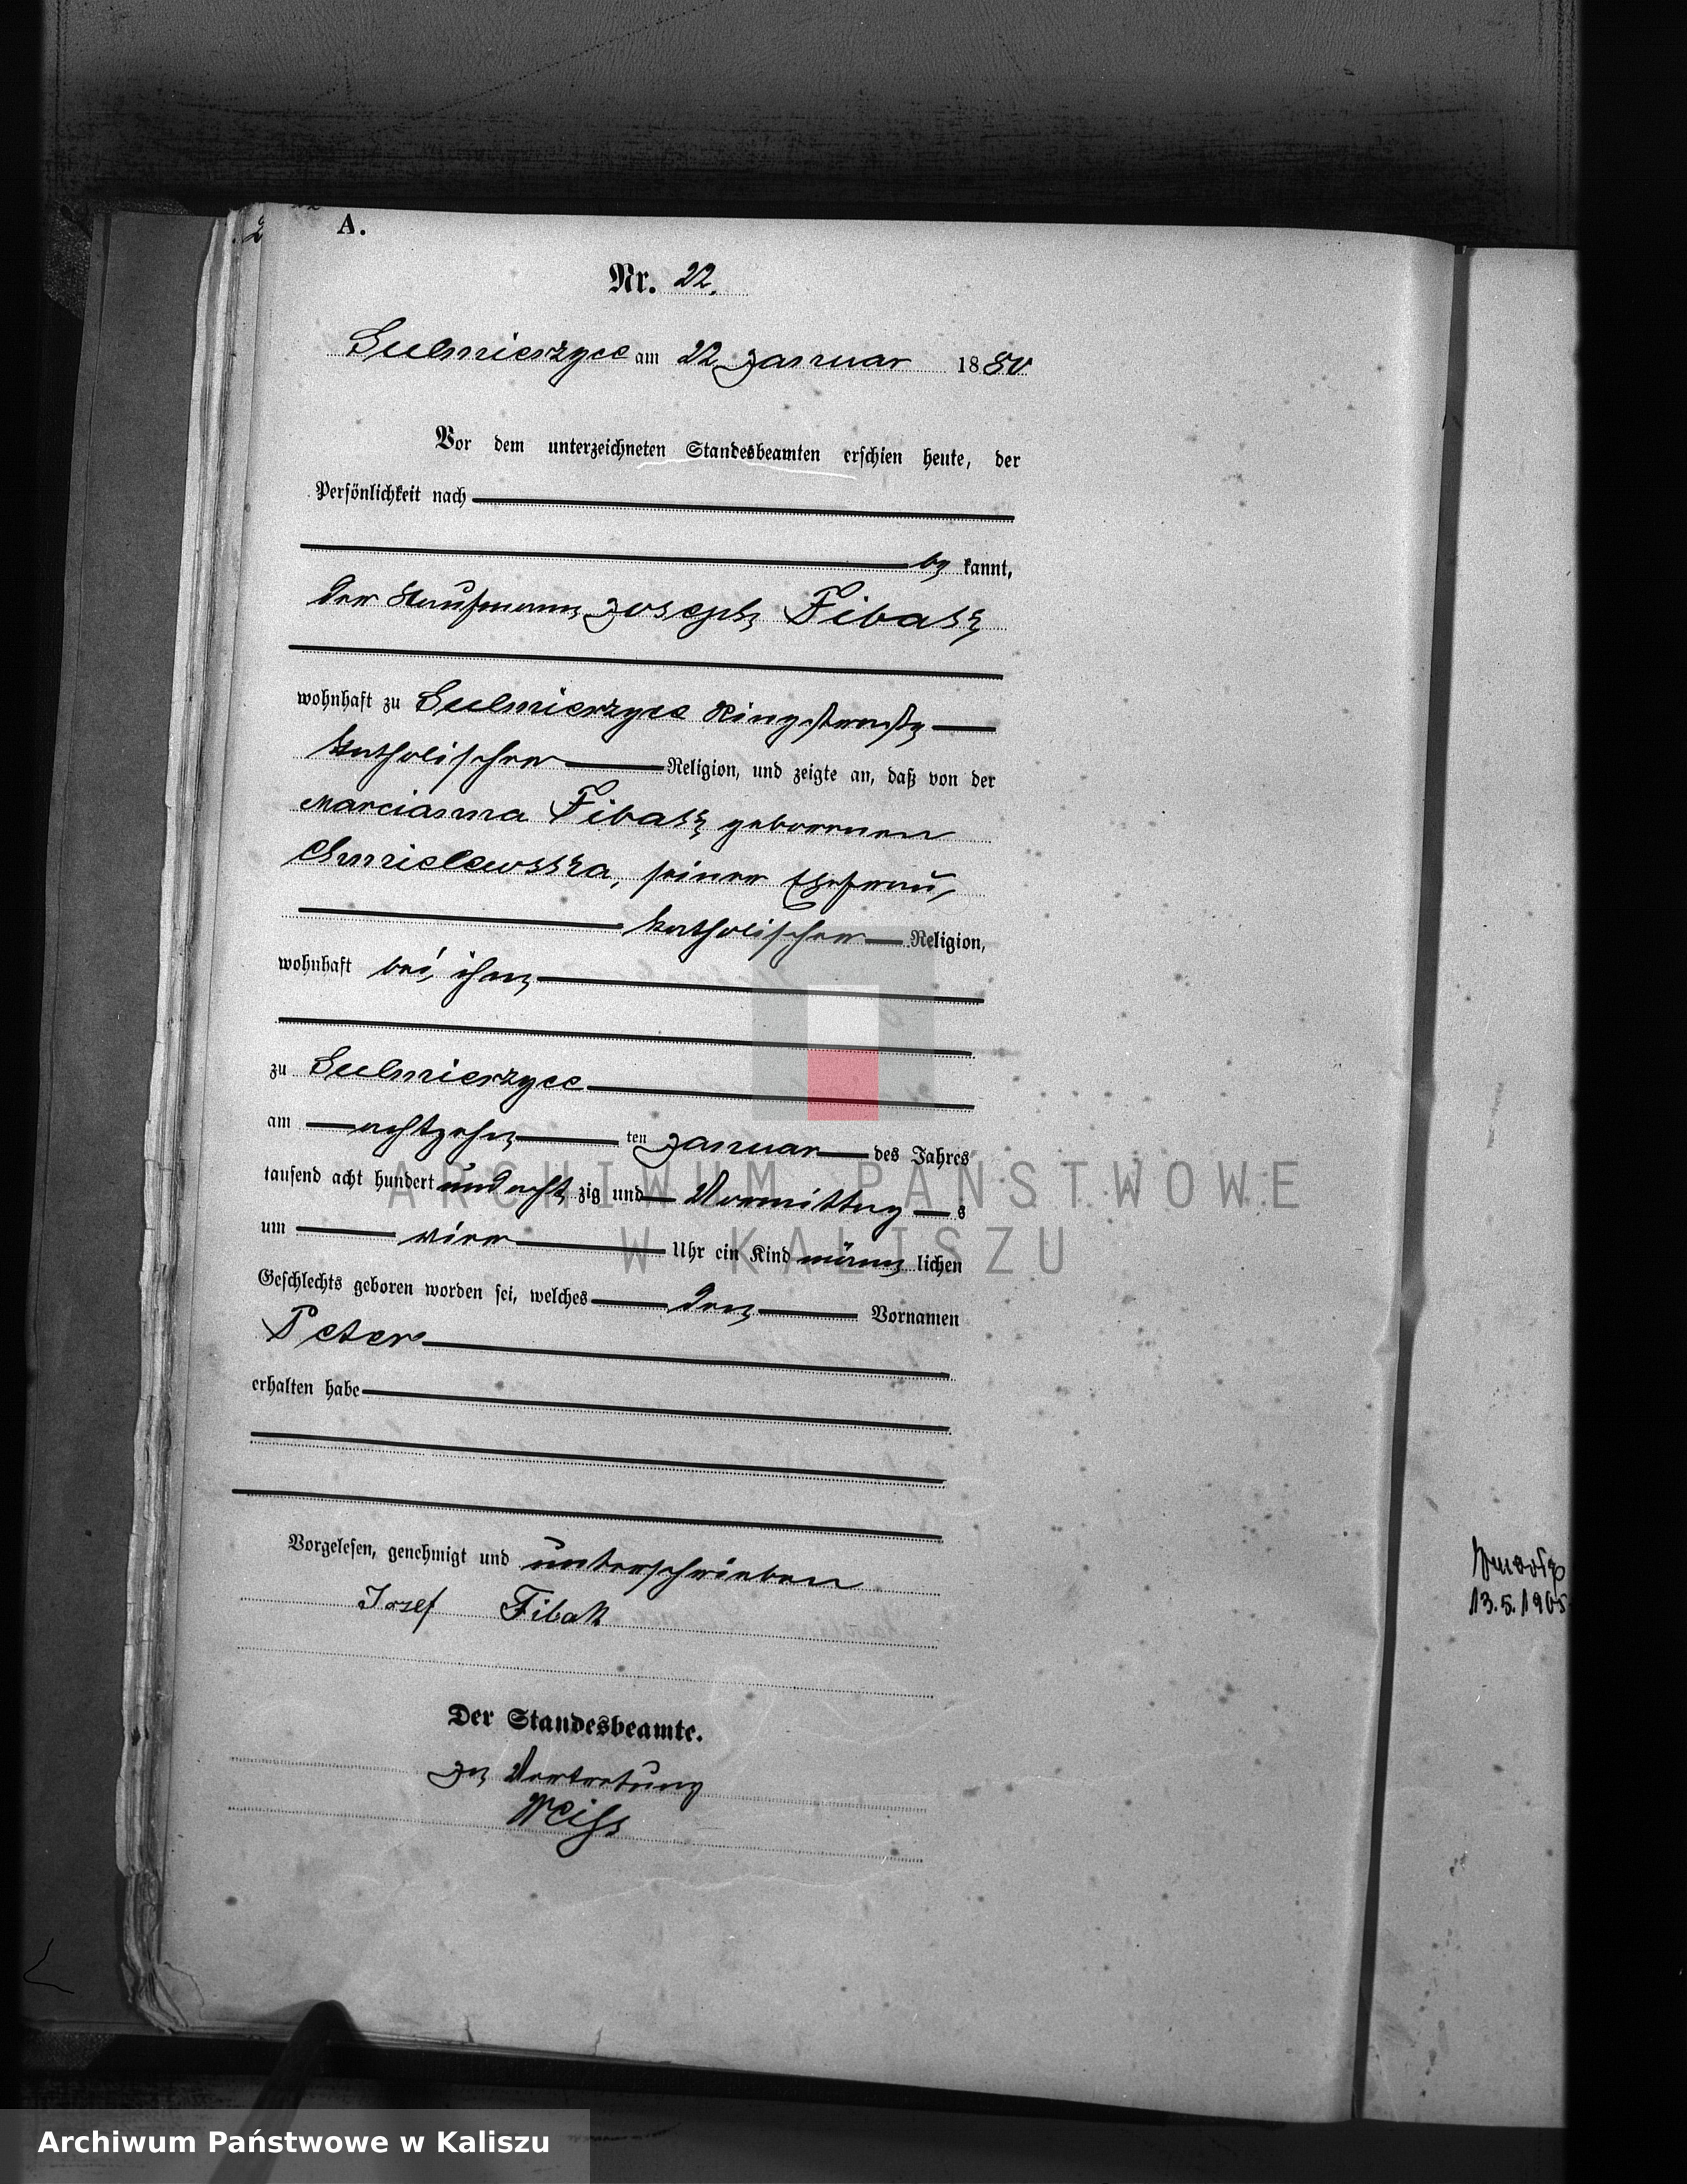 A.
Nr. 22.
Sulmierzyce am 22 Januar 1880
Vor dem unterzeichneten Standesbeamten erschien heute, der
Persönlichkeit nach
be kannt,
der Kaufmann Joseph Fibak
wohnhaft zu Sulmierzyce Ringstraße
katholischer Religion, und zeigte an, daß von der
Marcianna Fibak geborenen
Chmielewska, seiner Ehefrau,
katholischer Religion,
wohnhaft bei ihm
zu Sulmierzyce
am achtzehn ten Januar des Jahres
tausend acht hundert und acht zig und Vormittag s
um vier Uhr ein Kind männ lichen
Geschlechts geboren worden sei, welches den Vornamen
Peter
erhalten habe
Vorgelesen, genehmigt und unterschrieben
Jozef Fibak
Der Standesbeamte.
In Vertretung
Weiss
13.5.1905
ARCHIWUM PAŃSTWOWE
W KALISZU
Archiwum Państwowe w Kaliszu